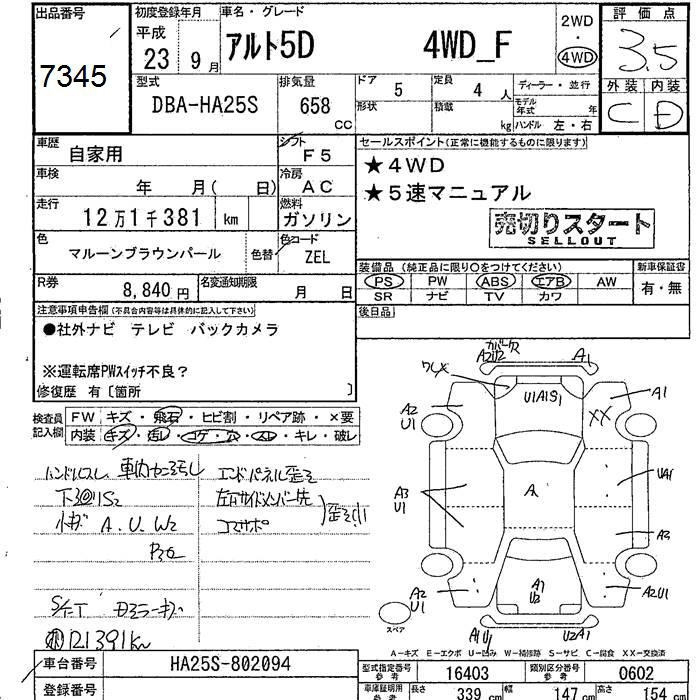 出品番号
7345
初度登録年月
平成
23 9月
車名・グレード
アルト5D 4WD_F
2WD
4WD
評価点
3.5
外装 内装
C D
型式
DBA-HA25S
排気量
658
CC
ドア
5
定員
4 人
形状
積載
kg
ディーラー・並行
モデル
年式
年
ハンドル 左・右
車歴
自家用
シフト
F5
車検
年 月( 日)
冷房
AC
走行
12万1千381 km
燃料
ガソリン
色
マルーンブラウンパール
色替
色コード
ZEL
R券
8,840円
名変通知期限
月 日
セールスポイント(正常に機能するものに限ります)
★4WD
★5速マニュアル
売切りスタート
SELLOUT
装備品(純正品に限り○をつけてください)
PS PW ABS エアB AW
SR ナビ TV カワ
新車保証書
有・無
後日品
注意事項申告欄(不具合内容等は具体的に記入して下さい)
●社外ナビ テレビ バックカメラ
※運転席PWスイッチ不良?
修復歴 有〔箇所 〕
検査員
記入欄
FW キズ・飛石・ヒビ割・リペア跡・×要
内装 キズ・汚レ・コゲ・穴・スレ・キレ・破レ
ハンドルスレ 車内セニ汚レ
エンドパネル歪ミ
下廻りS2
左右サイドメンバー先
コアサポ
歪ミ小
小キズ A.U.W2
S/T
121391km
A2 U2
A1
U1A1S1
XX
A1
A2
U1
A3
U1
A
UA1
A2
A2
U1
A1
U2
A2U1
A1U1
U2A1
スペア
A-キズ E-エクボ U-凹み W-補修跡 S-サビ C-腐食 XX-交換済
車台番号
HA25S-802094
登録番号
型式指定番号
参考
16403
類別区分番号
参考
0602
車庫証明用
参考
長さ
339 cm
幅
147 cm
高さ
154 cm